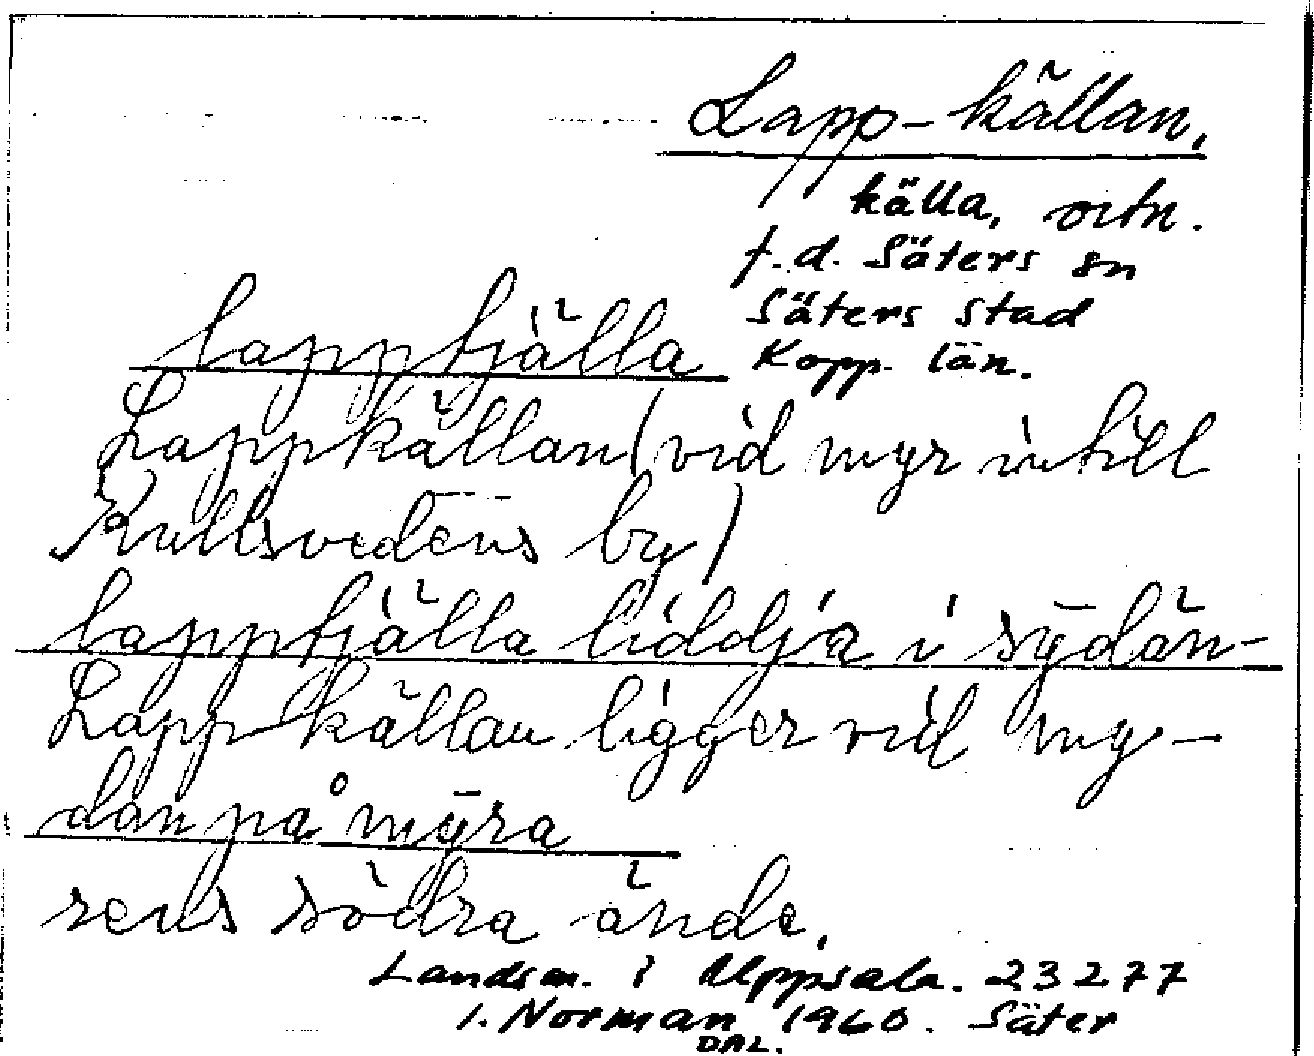 Lapp-källan,
källa, ortn.
f.d. Säters sn
Säters stad
Kopp. län.
lapptjälla
Lappkällan (vid myr intill
Kullsvedens by)
lapptjälla liddja i sȳdän-
Lappkällan ligger vid my-
dan på mȳra
rens södra ände.
Landsm. i Uppsala. 23277
I. Norman 1960. Säter
DAL.